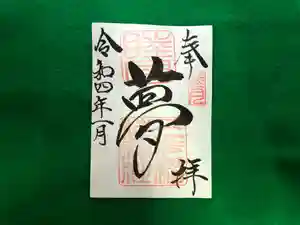 奉拝
夢
令和四年一月